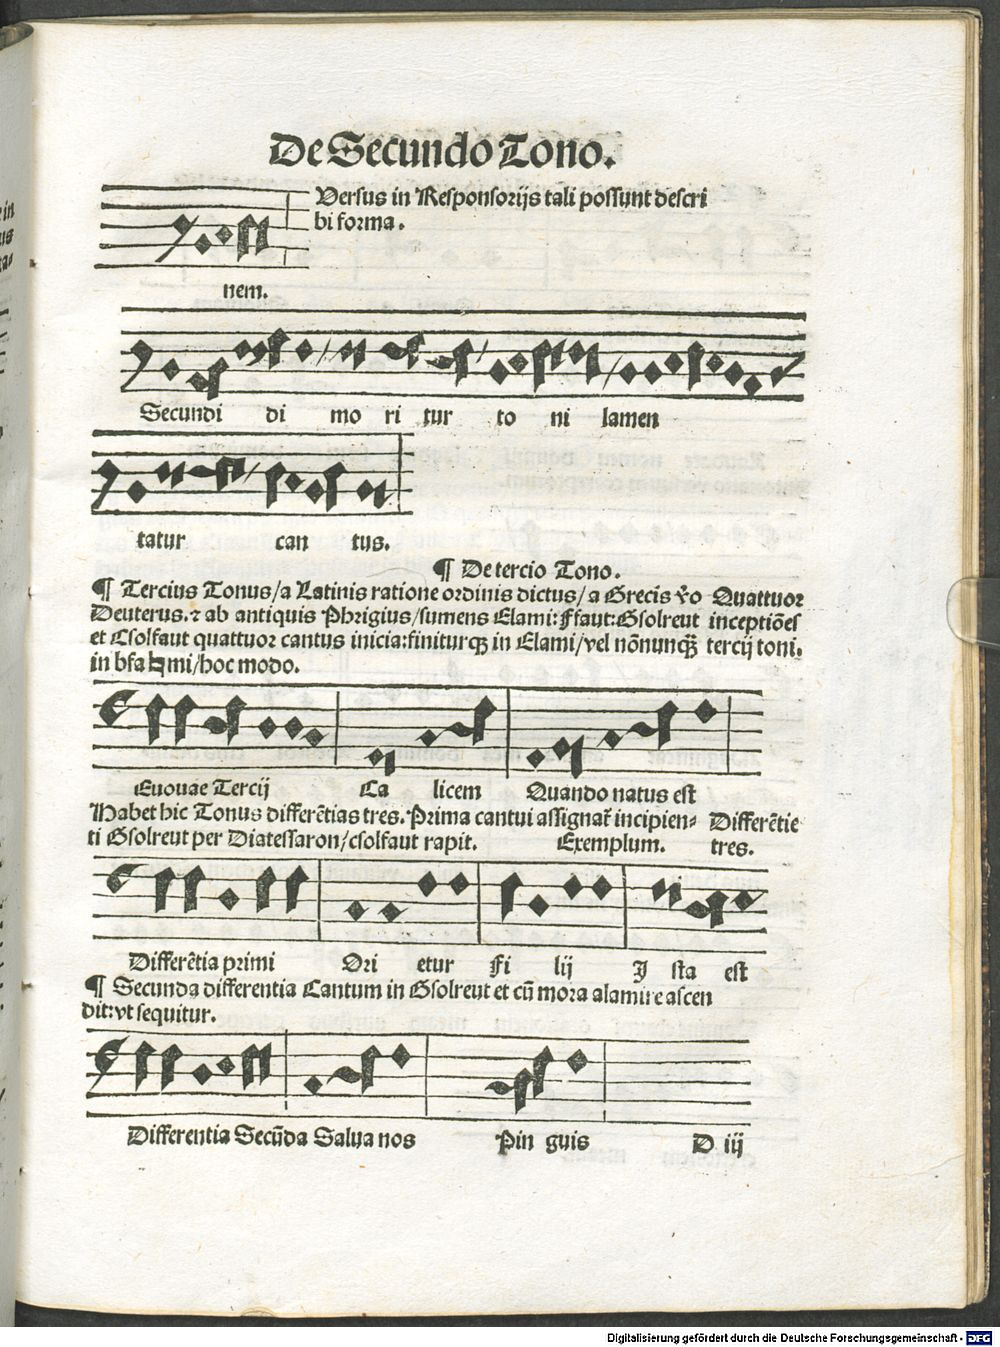 De Secundo Tono.
Versus in Responsorijs tali possunt descri
bi forma.
nem.
Secundi di mo ri tur to ni lamen
tatur can tus.
¶ De tercio Tono.
¶ Tercius Tonus/a Latinis ratione ordinis dictus/a Grecis v̄o Quattuor
Deuterus.⁊ ab antiquis Phrigius/sumens Elami:Ffaut:Gsolreut inceptiōes
et Csolfaut quattuor cantus inicia:finiturqʒ in Elami/vel nōnunqʒ̄ tercij toni.
in bfa ♮ mi/hoc modo.
Euouae Tercij Ca licem Quando natus est
Habet hic Tonus differētias tres. Prima cantui assignat᷑ incipien⸗ Differētie
ti Gsolreut per Diatessaron/csolfaut rapit. Exemplum. tres.
Differētia primi Ori etur Fi lij J sta est
¶ Secunda differentia Cantum in Gsolreut et cū mora alamire ascen
dit:vt sequitur.
Differentia Secūda Salua nos Pin guis D iij
Digitalisierung gefördert durch die Deutsche Forschungsgemeinschaft - DFG